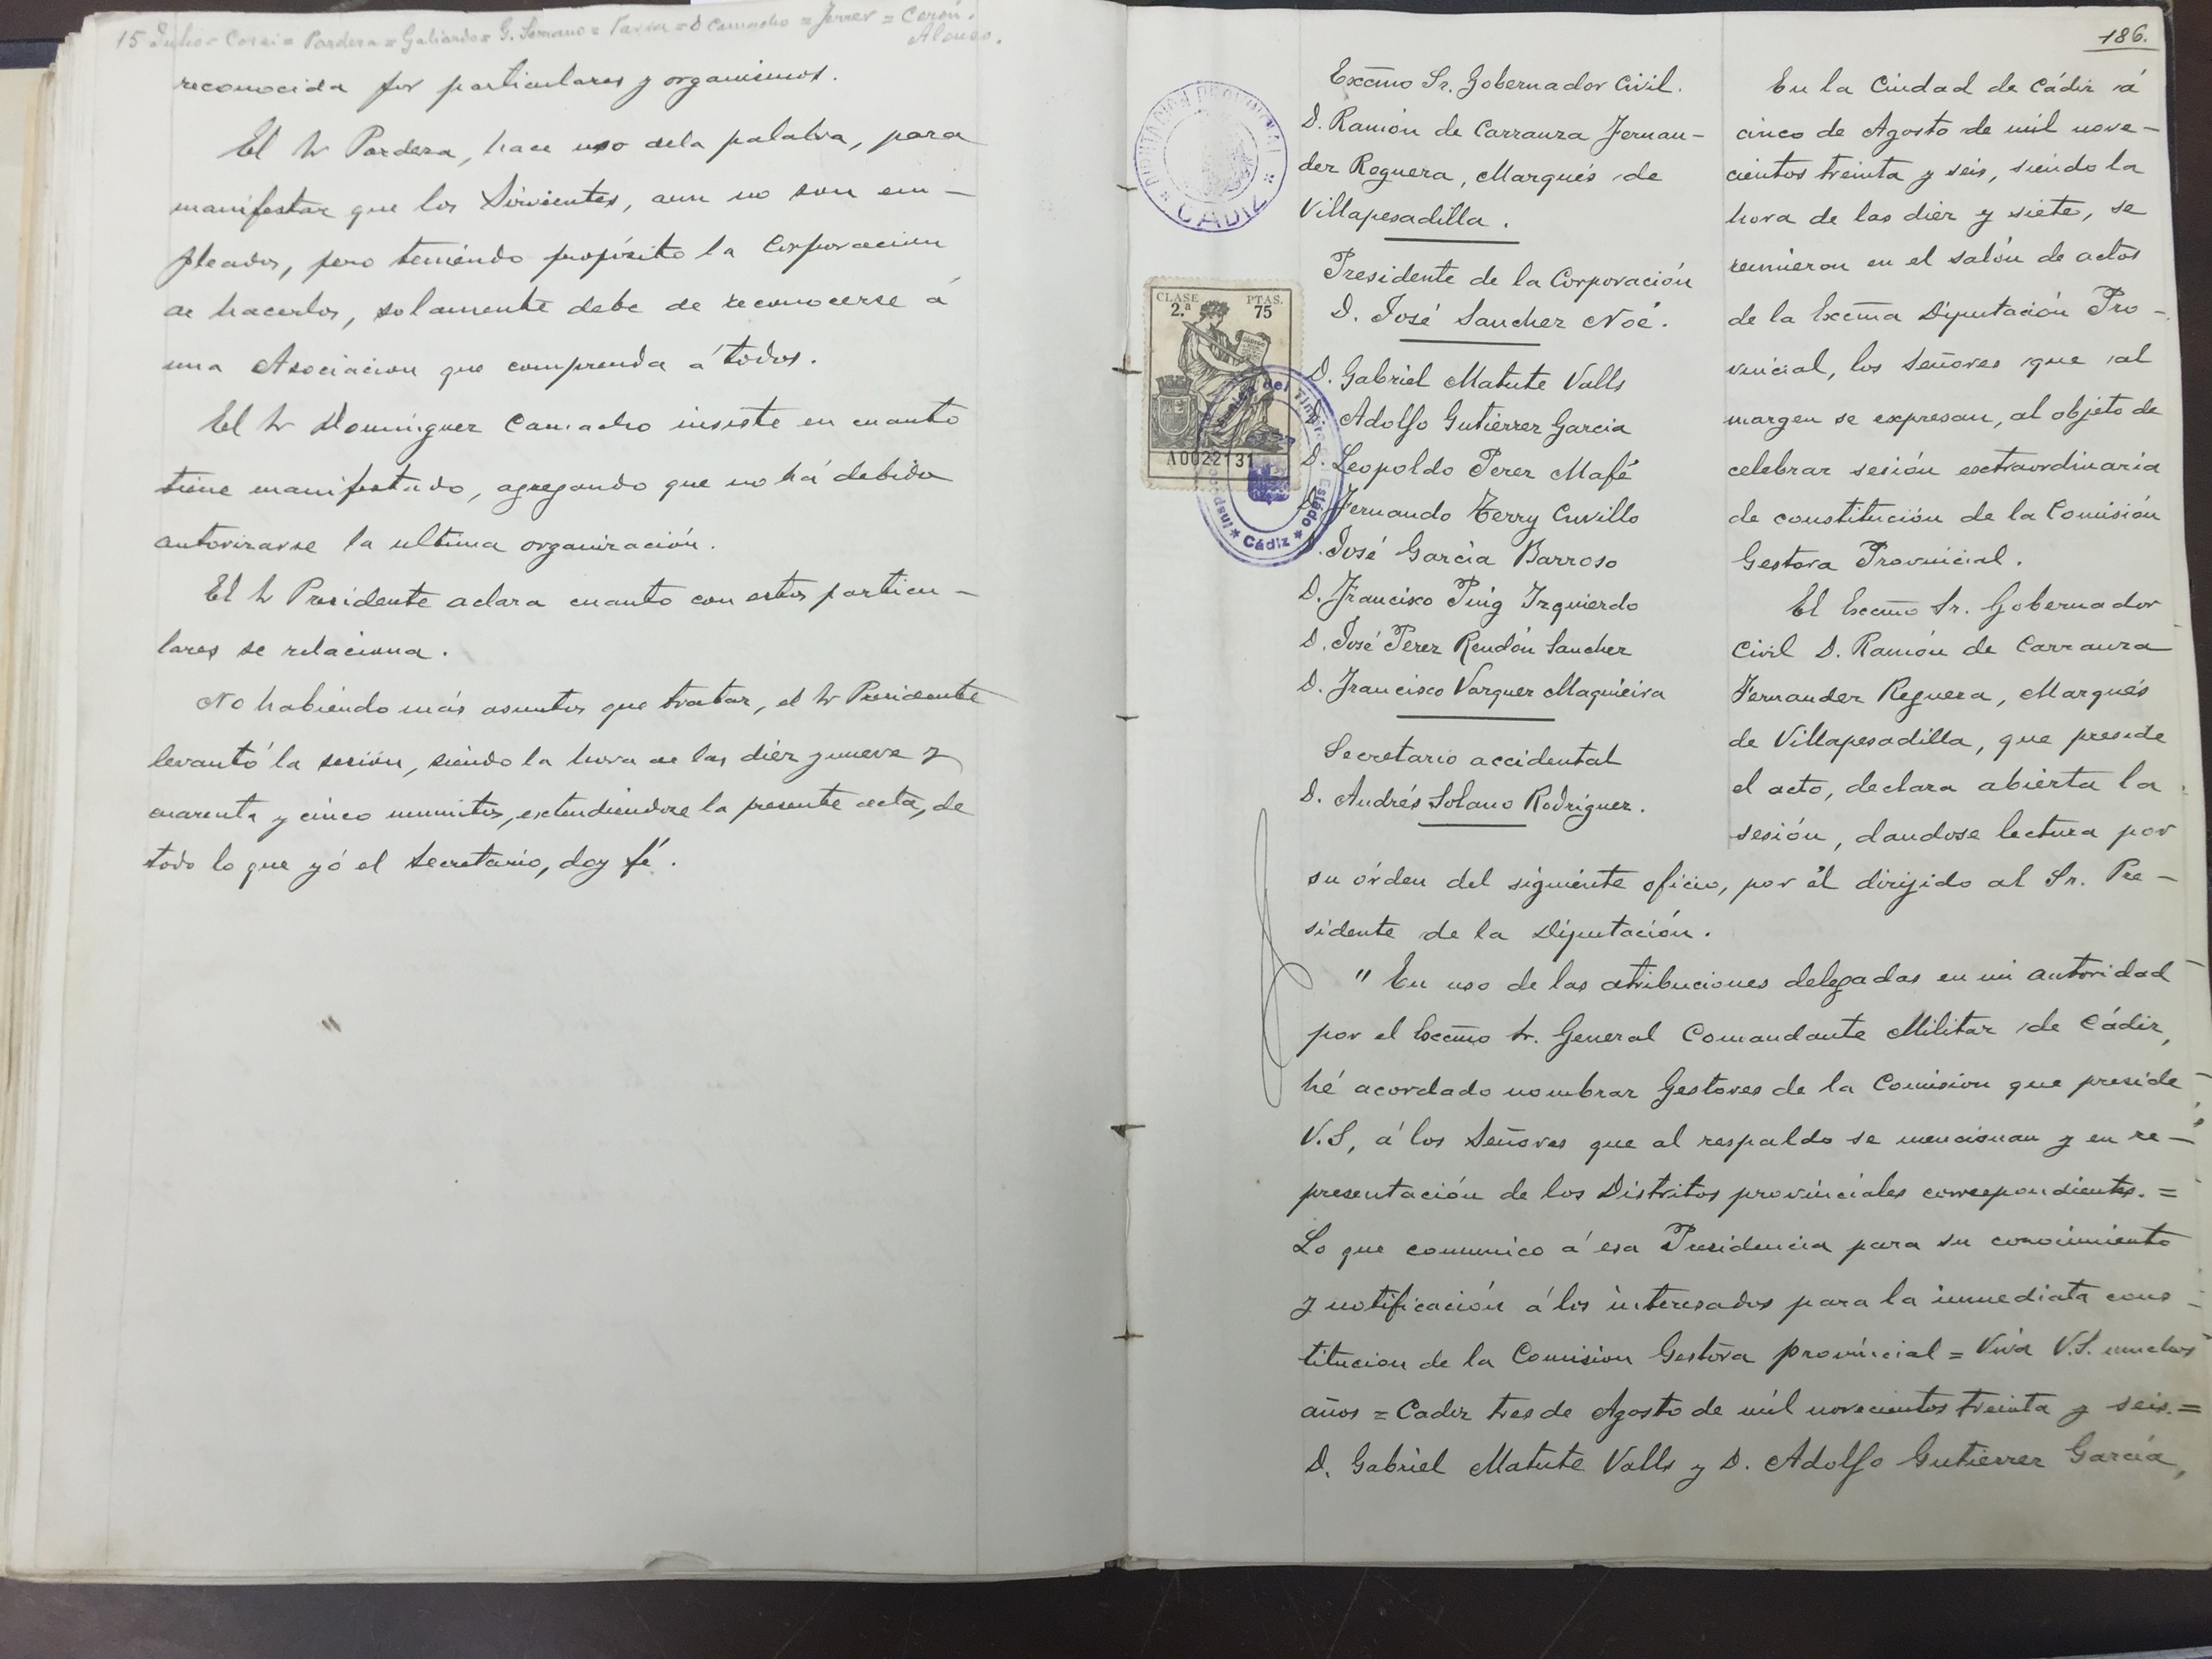 15 Julio = Corzi = Pardera = Galiardo = G. Serrano = Parra = D Camacho = Ferrer = Cerón.
Alonso.
reconocida por particulares y organismos.
El Sr Pardera, hace uso dela palabra, para
manifestar que los Sirvientes, aun no son em-
pleados, pero teniendo propósito la Corporacion
de hacerlos, solamente debe de reconocerse á
una Asociacion que comprenda á todos.
El Sr Dominguez Camacho insiste en cuanto
tiene manifestado, agregando que no há debido
autorizarse la ultima organización.
El Sr Presidente aclara cuanto con estos particu-
lares se relaciona.
No habiendo más asuntos que tratar, el Sr Presidente
levantó la sesión, siendo la hora de las diez y nueve y
cuarenta y cinco minutos, extendiendose la presente acta, de
todo lo que yó el Secretario, doy fé.
"
186.
DIPUTACIÓN PROVINCIAL
* CADIZ *
CLASE 2.ª PTAS. 75
A0022131
del Timbre Estado
* Cádiz *
Excm̃o Sr. Gobernador Civil.
D. Ramón de Carranza Fernan-
dez Reguera, Marqués de
Villapesadilla.
Presidente de la Corporación
D. José Sanchez Noé.
D. Gabriel Matute Valls
D. Adolfo Gutierrez Garcia
D. Leopoldo Perez Mafé
D. Fernando Terry Cuvillo
D. José García Barroso
D. Francisco Puig Izquierdo
D. José Perez Rendón Sanchez
D. Francisco Vazquez Maquieira
Secretario accidental
D. Andrés Solano Rodríguez.
En la Ciudad de Cádiz á
cinco de Agosto de mil nove-
cientos treinta y seis, siendo la
hora de las diez y siete, se
reunieron en el salón de actos
de la Excm̃a Diputación Pro-
vincial, los Señores que al
margen se expresan, al objeto de
celebrar sesión extraordinaria
de constitución de la Comisión
Gestora Provincial.
El Excm̃o Sr. Gobernador
Civil D. Ramón de Carranza
Fernandez Reguera, Marqués
de Villapesadilla, que preside
el acto, declara abierta la
sesión, dandose lectura por
su órden del siguiente oficio, por él dirijido al Sr. Pre-
sidente de la Diputación.
" En uso de las atribuciones delegadas en mi autoridad
por el Excm̃o Sr. General Comandante Militar de Cádiz,
hé acordado nombrar Gestores de la Comision que preside
V.S, á los Señores que al respaldo se mencionan y en re-
presentación de los Distritos provinciales correspondientes. =
Lo que comunico á esa Presidencia para su conocimiento
y notificación á los interesados para la inmediata cons-
titucion de la Comision Gestora provincial = Viva V.S. muchos
años = Cadiz tres de Agosto de mil novecientos treinta y seis. =
D. Gabriel Matute Valls y D. Adolfo Gutierrez García,